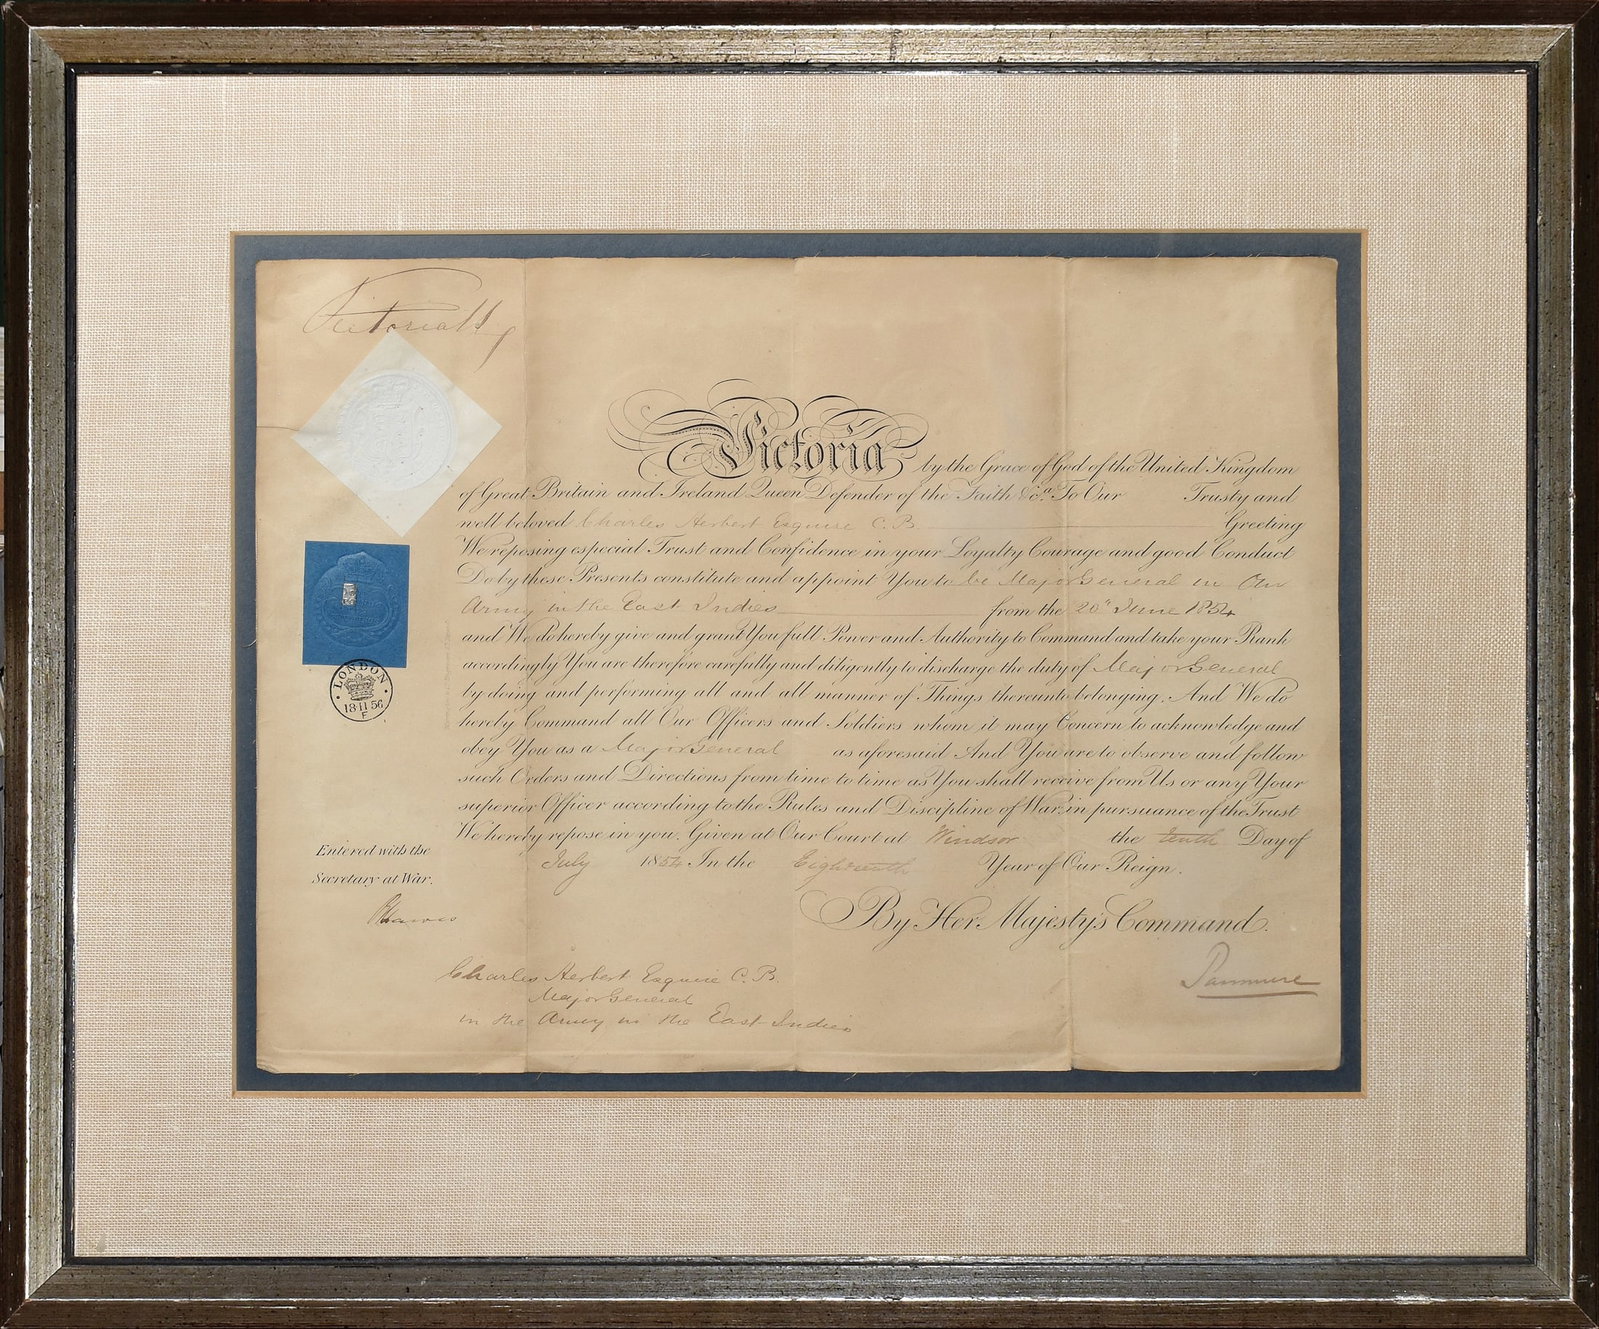 Victoria R
Victoria by the Grace of God of the United Kingdom
of Great Britain and Ireland Queen Defender of the Faith &ca. To Our Trusty and
well beloved Charles Herbert Esquire C.B. Greeting
We reposing especial Trust and Confidence in your Loyalty Courage and good Conduct
Do by these Presents constitute and appoint You to be Major General in Our
Army in the East Indies from the 20th June 1854
and We do hereby give and grant You full Power and Authority to Command and take your Rank
accordingly You are therefore carefully and diligently to discharge the duty of Major General
by doing and performing all and all manner of Things thereunto belonging. And We do
hereby Command all Our Officers and Soldiers whom it may Concern to acknowledge and
obey You as a Major General as aforesaid And You are to observe and follow
such Orders and Directions from time to time as You shall receive from Us or any Your
superior Officer according to the Rules and Discipline of War, in pursuance of the Trust
We hereby repose in you. Given at Our Court at Windsor the tenth Day of
July 1854 In the Eighteenth Year of Our Reign.
By Her Majesty's Command.
Panmure
LONDON
18·11·56
F
Entered with the
Secretary at War.
Charles Herbert Esquire C.B.
Major General
in the Army in the East Indies